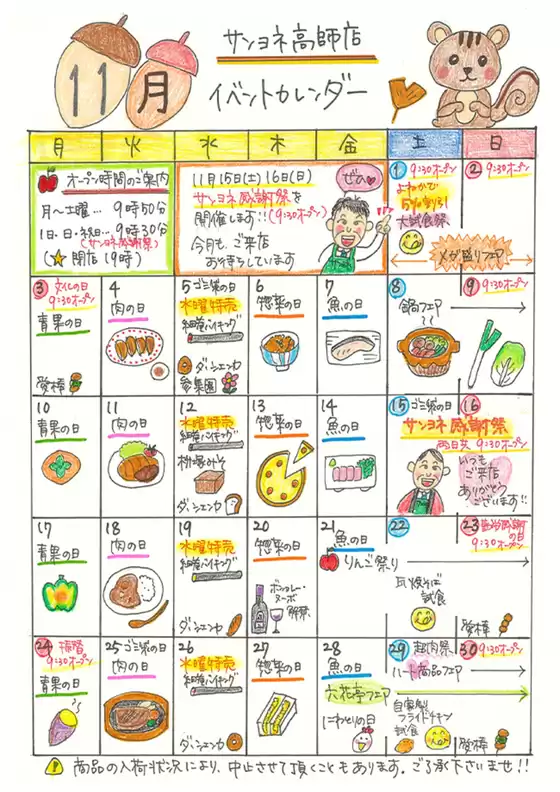 11月
サンヨネ高師店
イベントカレンダー
月 火 水 木 金 土 日
オープン時間のご案内
月〜土曜… 9時50分
1日、日・祝日… 9時30分
(サンヨネ感謝祭)
(★ 閉店 19時)
11月15日(土)16日(日)
サンヨネ感謝祭を
開催します!!(9:30オープン)
今月も、ご来店
お待ちしています
ぜひ♥
1 9:30オープン
よねかで
5%割引
大試食祭
2 9:30オープン
メガ盛りフェア
3 文化の日
9:30オープン
青果の日
愛棒
4
肉の日
5 ゴミ袋の日
水曜特売
細巻バイキング
ダ・シェンカ
参集園
6
惣菜の日
7
魚の日
8
鍋フェア
9 9:30オープン
10
青果の日
11
肉の日
12
水曜特売
細巻バイキング
桝塚みそ
ダ・シェンカ
13
惣菜の日
14
魚の日
15 ゴミ袋の日
16
サンヨネ感謝祭
両日共 9:30オープン
いつも
ご来店
ありがとう
ございます!!
17
青果の日
18
肉の日
19
水曜特売
細巻バイキング
ダ・シェンカ
20
惣菜の日
ボジョレー・
ヌーボ
解禁
21
魚の日
りんご祭り
22
瓦焼そば
試食
23 勤労感謝
の日
9:30オープン
愛棒
24 振替
9:30オープン
青果の日
25 ゴミ袋の日
肉の日
26
水曜特売
細巻バイキング
ダ・シェンカ
27
惣菜の日
28
魚の日
六花亭フェア
にわとりの日
29 超肉祭
ハート商品フェア
自家製
フライドチキン
試食
30 9:30オープン
愛棒
商品の入荷状況により、中止させて頂くこともあります。ご了承下さいませ!!